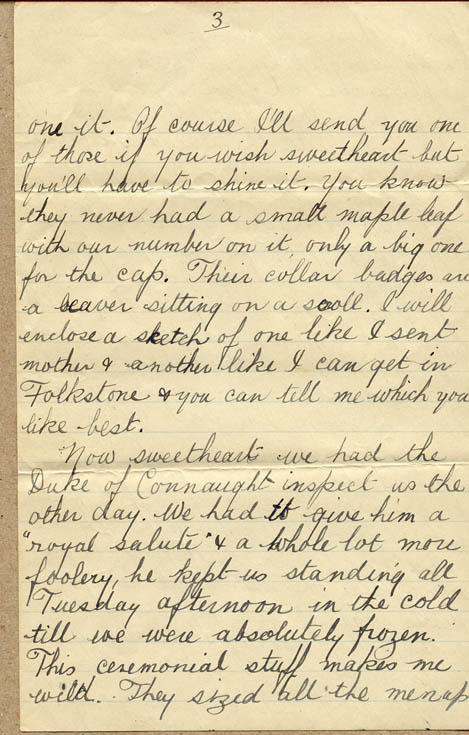 3
one it. Of course I'll send you one
of those if you wish sweetheart but
you'll have to shine it. You know
they never had a small maple leaf
with our number on it, only a big one
for the cap. Their collar badges are
a beaver sitting on a scroll. I will
enclose a sketch of one like I sent
mother & another like I can get in
Folkstone & you can tell me which you
like best.
Now sweetheart we had the
Duke of Connaught inspect us the
other day. We had to give him a
"royal salute" & a whole lot more
foolery, he kept us standing all
Tuesday afternoon in the cold
till we were absolutely frozen.
This ceremonial stuff makes me
wild. They sized all the men up